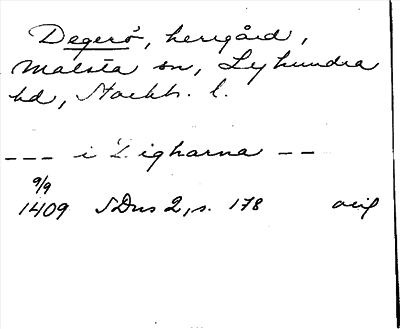 Degerö, herrgård,
Malsta sn, Lyhundra
hd, Stockh. l.
--- i Digharna --
9/9
1409 SDns 2, s. 178 orig